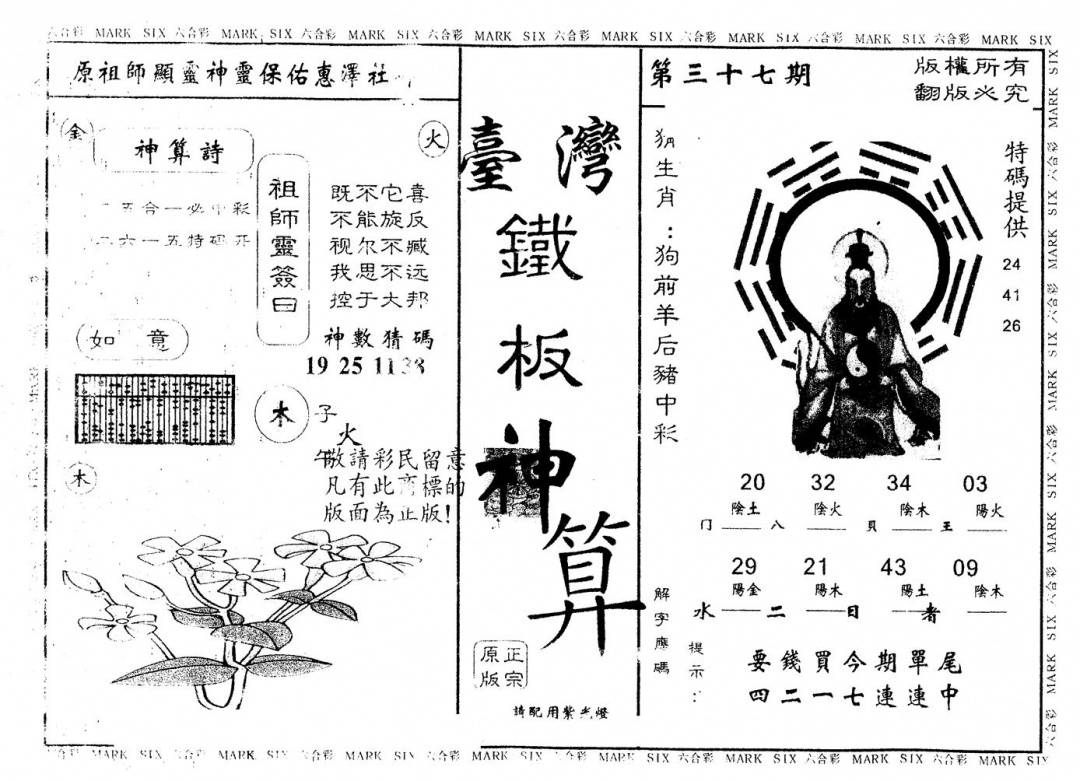 六合彩 MARK SIX 六合彩 MARK SIX 六合彩 MARK SIX 六合彩 MARK SIX 六合彩 MARK SIX 六合彩 MARK SIX 六合彩 MARK SIX 六合彩 MARK SIX
原祖師顯靈神靈保佑惠澤社
金
神算詩
五合一必中彩
二六一五特碼开
祖師靈簽曰
火
既不它喜
不能旋反
视尔不臧
我思不远
控于大邦
神數猜碼
19 25 11 38
如意
木
木
子
火
午
敬請彩民留意
凡有此商標的
版面為正版!
臺灣
鐵
板
神
算
原正
版宗
請配用紫光燈
第三十七期
版權所有
翻版必究
生肖:狗前羊后豬中彩
特碼提供
24
41
26
20 32 34 03
陰土 陰火 陰木 陽火
门 八 貝 王
29 21 43 09
陽金 陽木 陽土 陰木
水 二 日 者
解字應碼
提示:
要錢買今期單尾
四二一七連連中
六合彩 MARK SIX 六合彩 MARK SIX 六合彩 MARK SIX 六合彩 MARK SIX 六合彩 MARK SIX 六合彩 MARK SIX 六合彩 MARK SIX 六合彩 MARK SIX